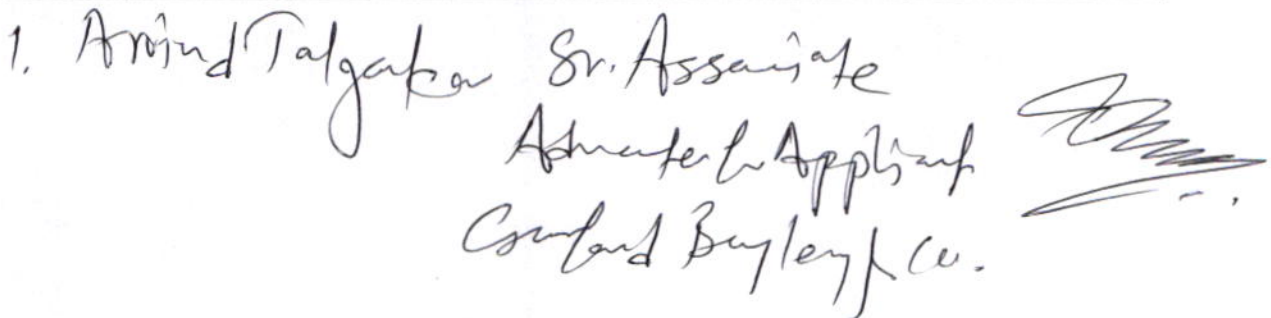 1. Arvind Talgarkar Sr. Associate
Advocate for Applicant
Crawford Bayley & Co.